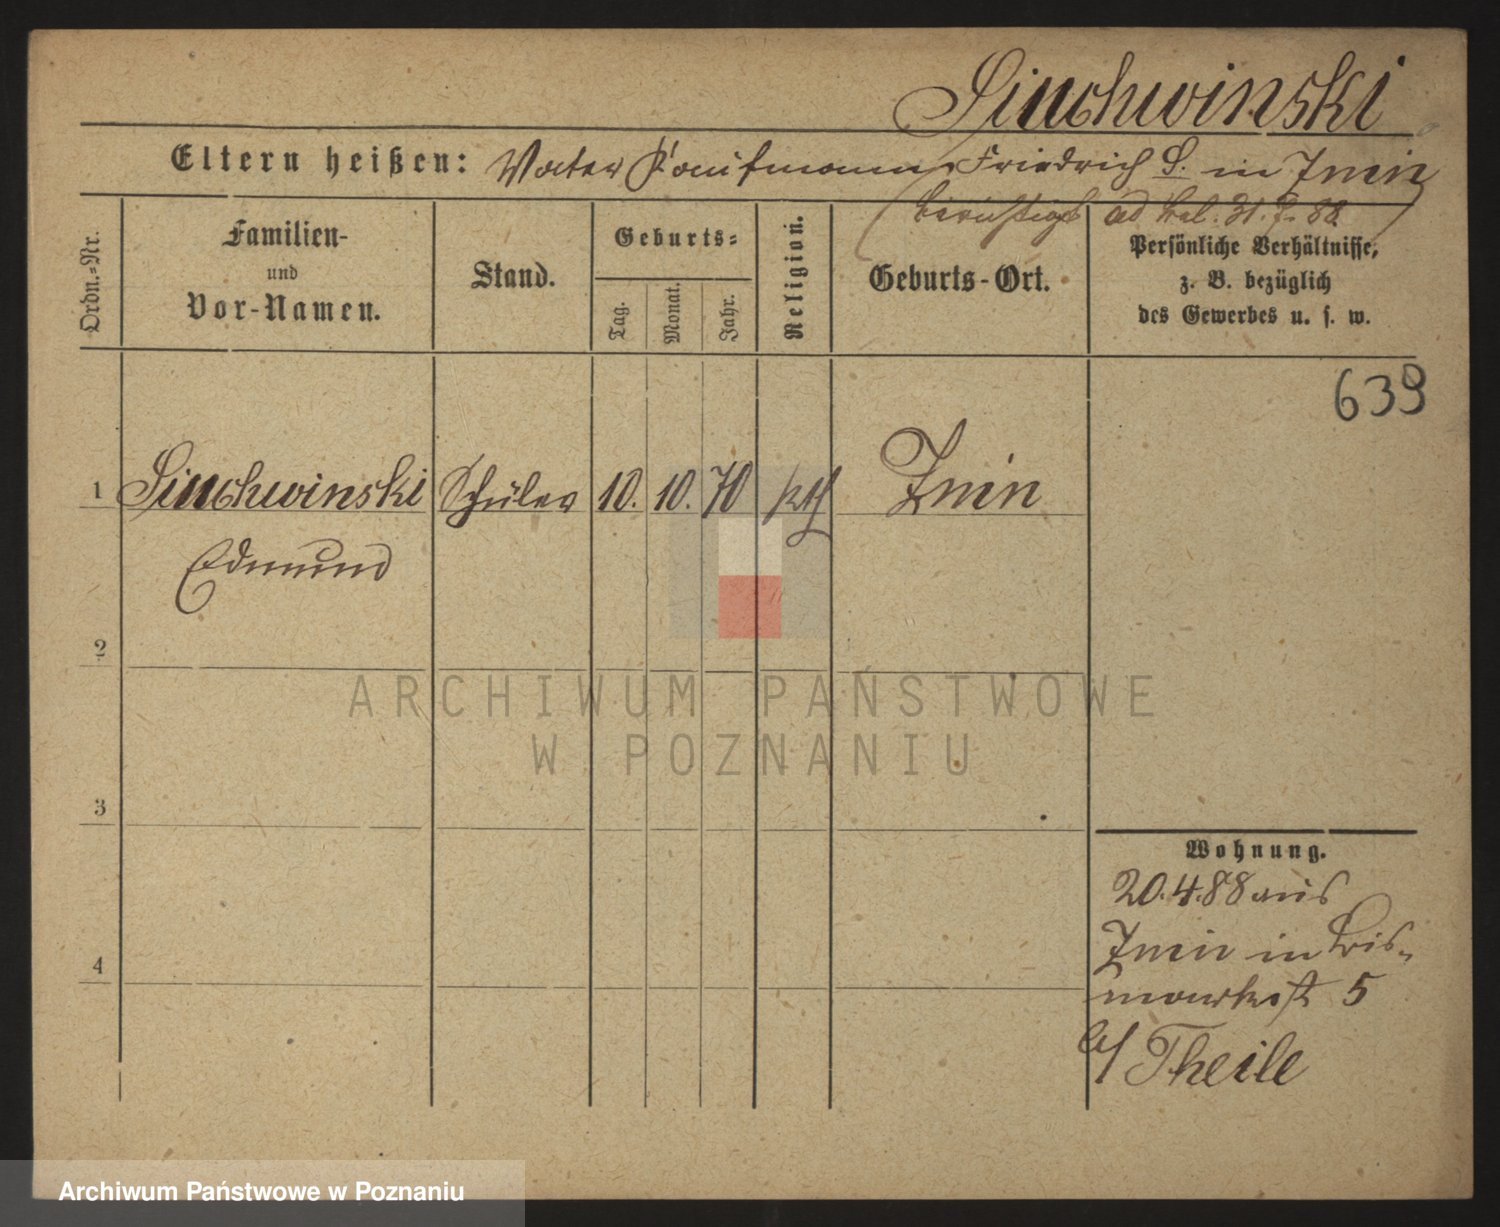 Siuchwinski
Eltern heißen: Vater Kaufmann Friedrich S. in Znin
berichtigt ad 31. 7. 88
Ordn.=Nr.
Familien-
und
Vor-Namen.
Stand.
Geburts=
Tag.
Monat.
Jahr.
Religion.
Geburts-Ort.
Persönliche Verhältnisse,
z. B. bezüglich
des Gewerbes u. s. w.
639
1 Siuchwinski Schüler 10. 10. 70 kth Znin
Edmund
2
3
4
Wohnung.
20.4.88 aus
Znin in Bis-
markst 5
b/ Theile
ARCHIWUM PAŃSTWOWE
W POZNANIU
Archiwum Państwowe w Poznaniu